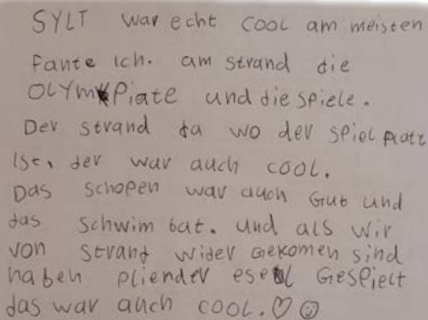 SYLT war echt COOL am meisten
fante ich. am strand die
OLYmPiate und die spiele.
Der strand da wo der spielplatz
ist, der war auch COOL.
Das schopen war auch Gut und
das schwim bat. und als wir
von strand wider gekomen sind
haben pliender esel Gespielt
das war auch COOL.♡☺